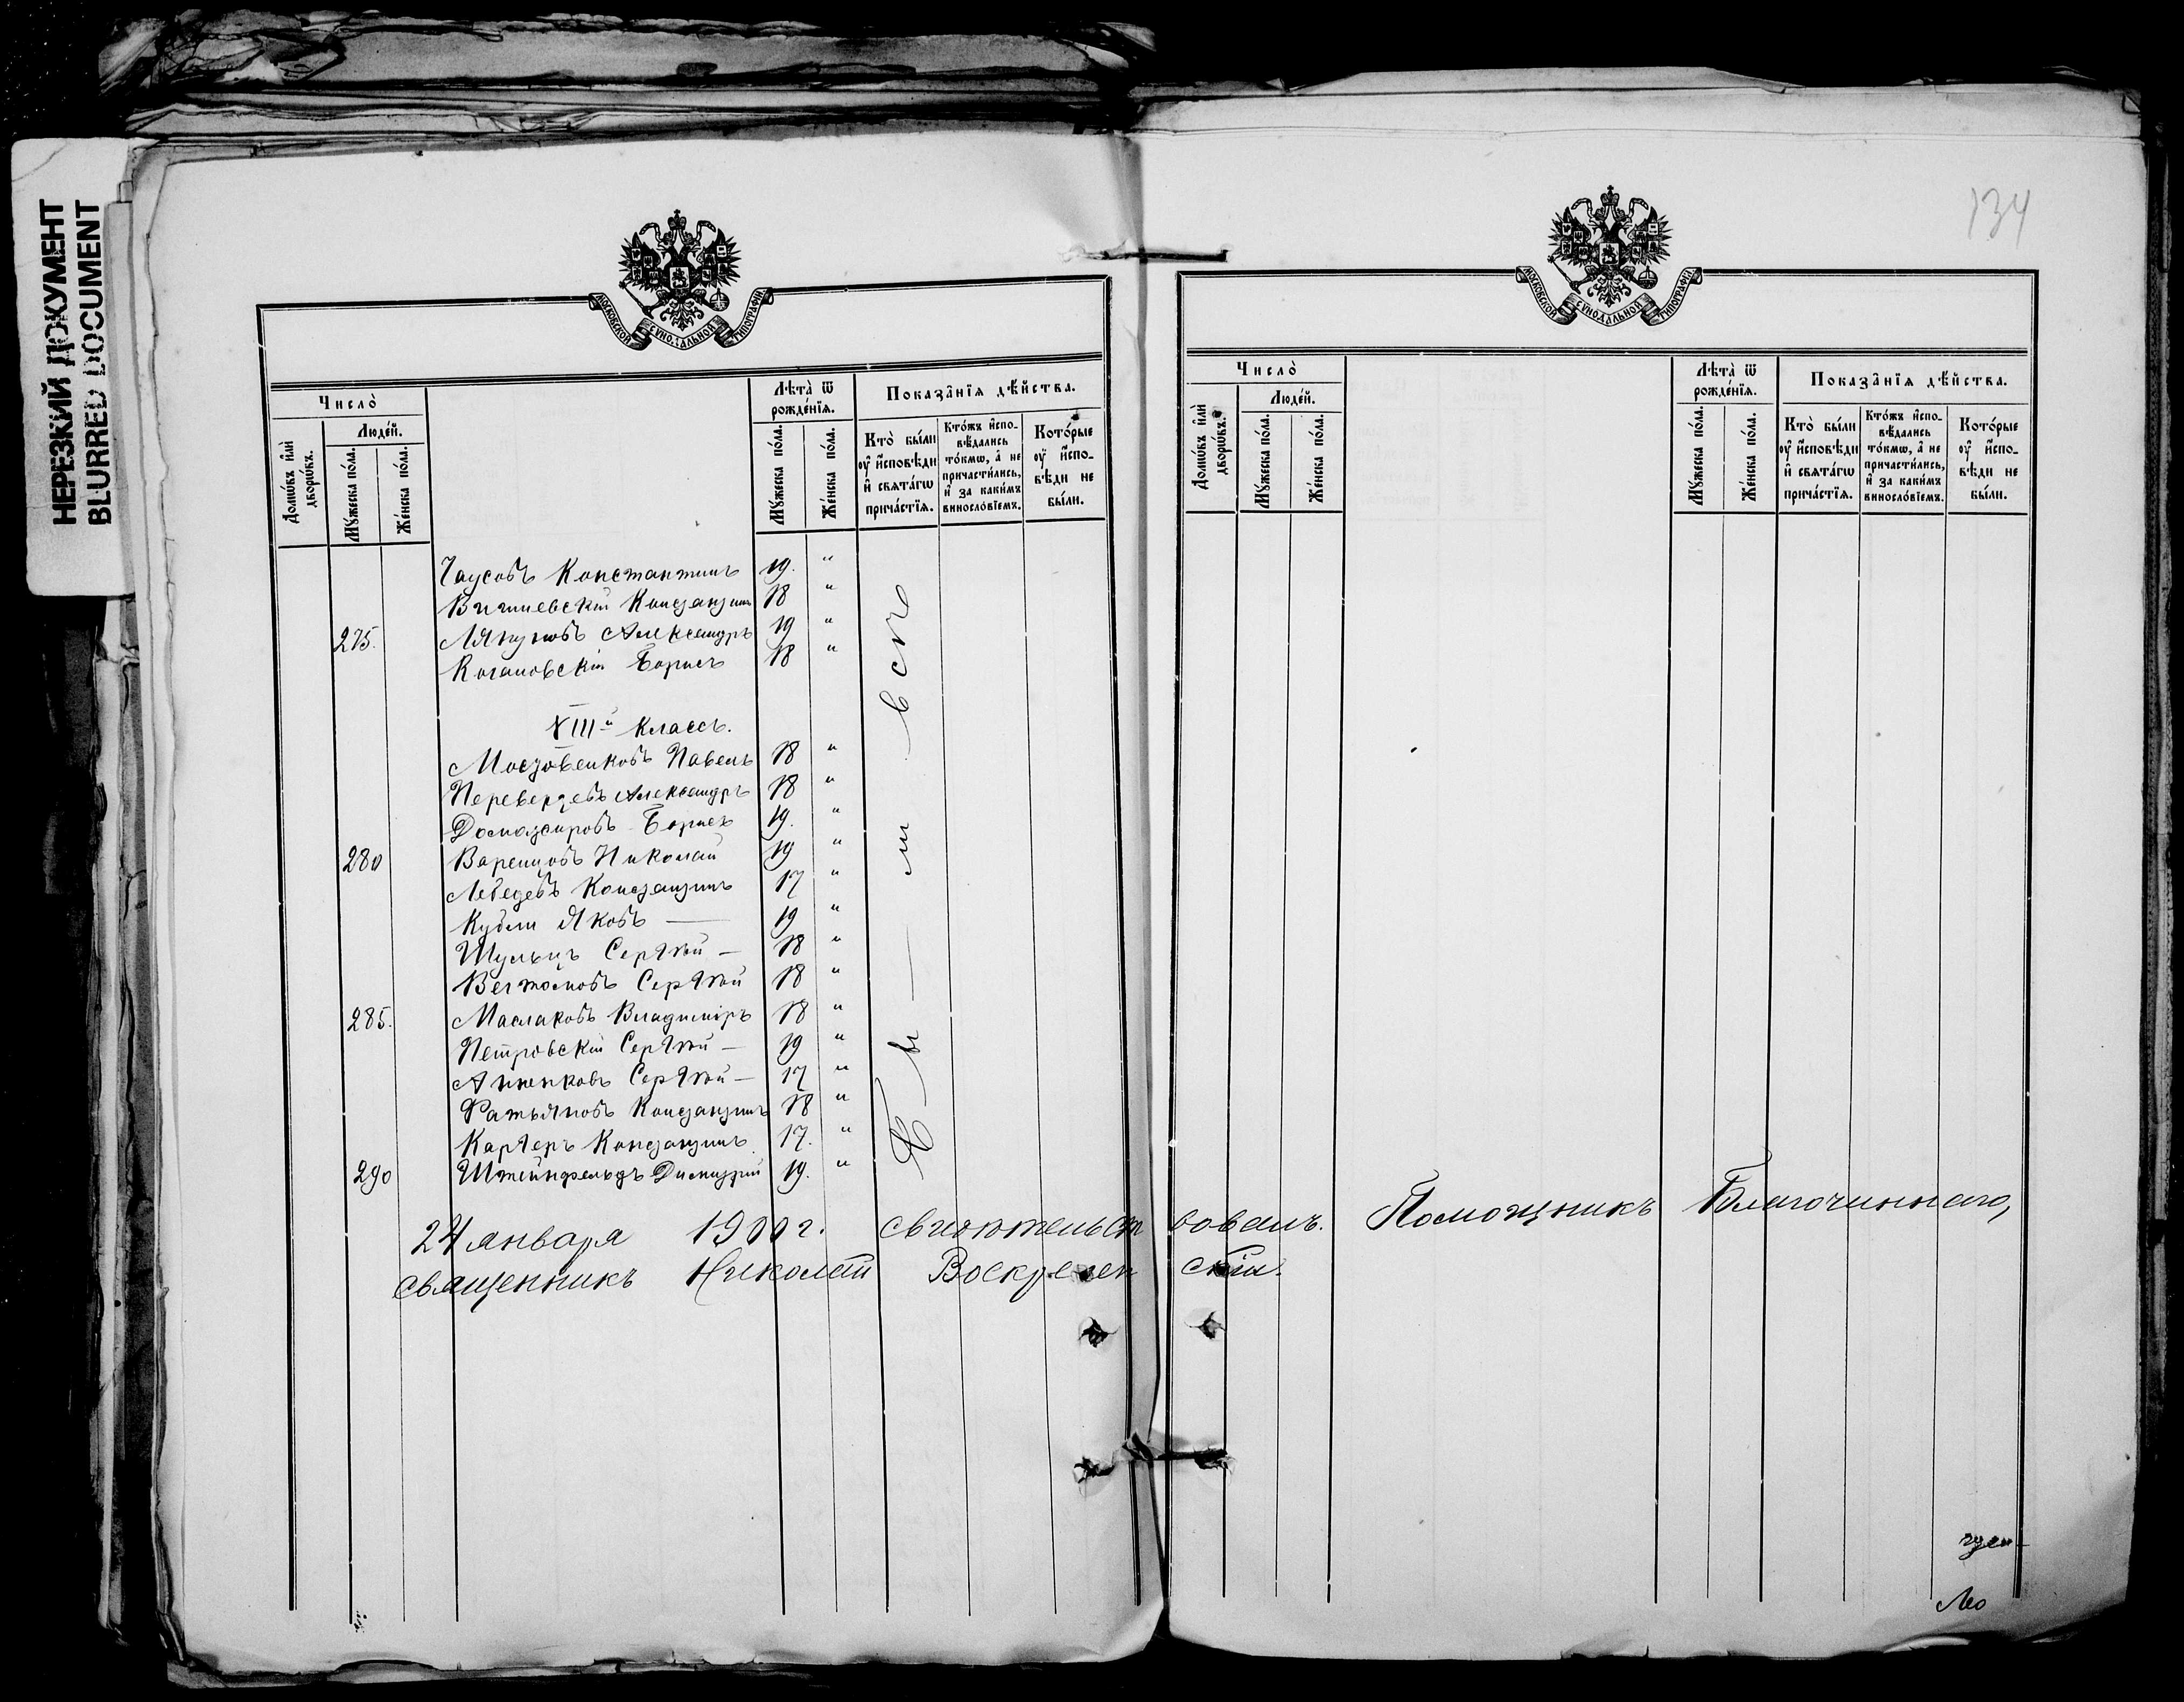 НЕРЕЗКИЙ ДОКУМЕНТ
BLURRED DOCUMENT
МОСКОВСКОЙ СѴНОДАЛЬНОЙ ТИПОГРАФІИ
Число̀
Домѡ́въ и҆лѝ дворѡ́въ.
Люде́й.
Мꙋ́жеска по́ла.
Же́нска по́ла.
Лѣ́та ѿ рожде́нїѧ.
Мꙋ́жеска по́ла.
Же́нска по́ла.
Показа̑нїѧ дѣ́йства.
Кто̀ бы́ли ᲂу҆ и҆сповѣ́ди и҆ свѧта́гѡ прича́стїѧ.
Кто́жъ и҆спо-вѣ́дались то́кмѡ, а҆ не причасти́лись, и҆ за каки́мъ винословїемъ.
Кото́рые ᲂу҆ и҆спо-вѣ́ди не бы́ли.
Чаусовъ Константинъ 19. "
Вигниевскій Константинъ 18 "
275. Ляпуновъ Александръ 19 "
Когановскій Борисъ 18 "
VIIIй классъ.
Мостовенковъ Павелъ 18 "
Переверзевъ Александръ 18 "
Доможировъ Борисъ 19. "
280 Варенцовъ Николай 19 "
Лебедевъ Константинъ 17 "
Кубли Яковъ — 19 "
Шульцъ Сергѣй — 18 "
Вегтомовъ Сергѣй 18 "
285. Маслаковъ Владиміръ 18 "
Петровскій Сергѣй — 19 "
Анненковъ Сергѣй — 17 "
Фатьяновъ Константинъ 18 "
Каргеръ Константинъ 17. "
290 Штейнфельдъ Димитрій 19. "
Бы — ли всѣ
24 января 1900 г. свидѣтельст вовалъ. Помощникъ Благочиннаго,
священникъ Николай Воскресен скій.
134
МОСКОВСКОЙ СѴНОДАЛЬНОЙ ТИПОГРАФІИ
Число̀
Домѡ́въ и҆лѝ дворѡ́въ.
Люде́й.
Мꙋ́жеска по́ла.
Же́нска по́ла.
Лѣ́та ѿ рожде́нїѧ.
Мꙋ́жеска по́ла.
Же́нска по́ла.
Показа̑нїѧ дѣ́йства.
Кто̀ бы́ли ᲂу҆ и҆сповѣ́ди и҆ свѧта́гѡ прича́стїѧ.
Кто́жъ и҆спо-вѣ́дались то́кмѡ, а҆ не причасти́лись, и҆ за каки́мъ винословїемъ.
Кото́рые ᲂу҆ и҆спо-вѣ́ди не бы́ли.